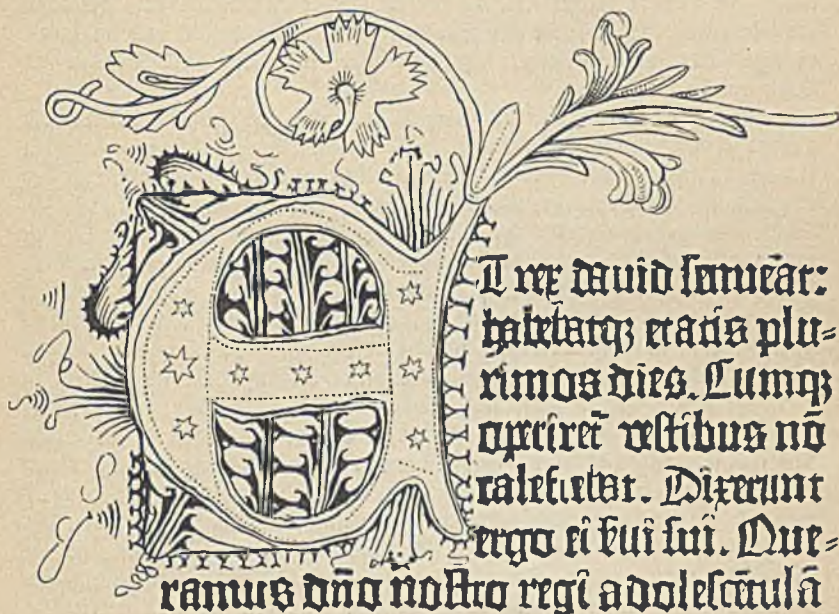 ET rex dauid senuerat:
habebatq; etatis plu=
rimos dies. Cumq;
operiret᷑ vestibus nō
calefiebat. Dixerunt
ergo ei ẜui sui. Que=
ramus dn̄o nostro regi adolescētulā